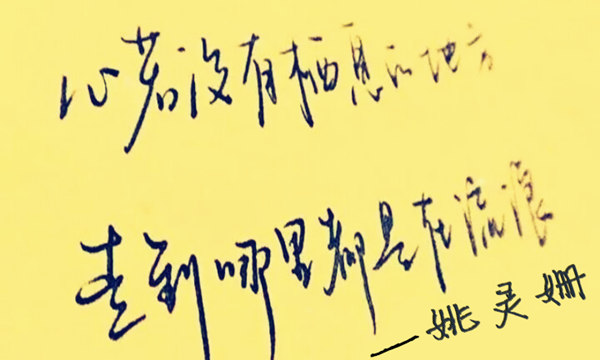 心若没有栖息的地方
走到哪里都是在流浪
—姚灵姗